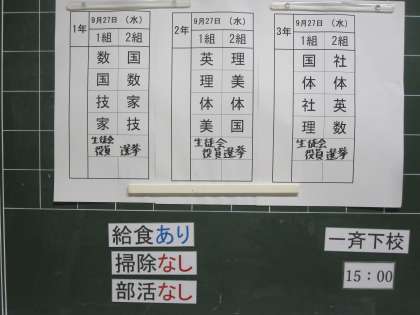 1年 9月27日（水）
1組 2組
数 国
国 数
技 家
家 技
生徒会
役員 選挙
2年 9月27日（水）
1組 2組
英 理
理 美
体 体
美 国
生徒会
役員選挙
3年 9月27日（水）
1組 2組
国 社
体 体
社 英
理 数
生徒会
役員選挙
給食あり
掃除なし
部活なし
一斉下校
15：00